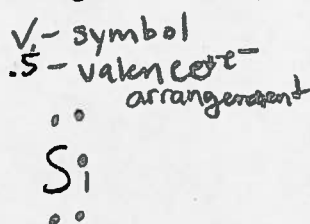 √ - symbol
.5 - valence e⁻
arrangement
Si